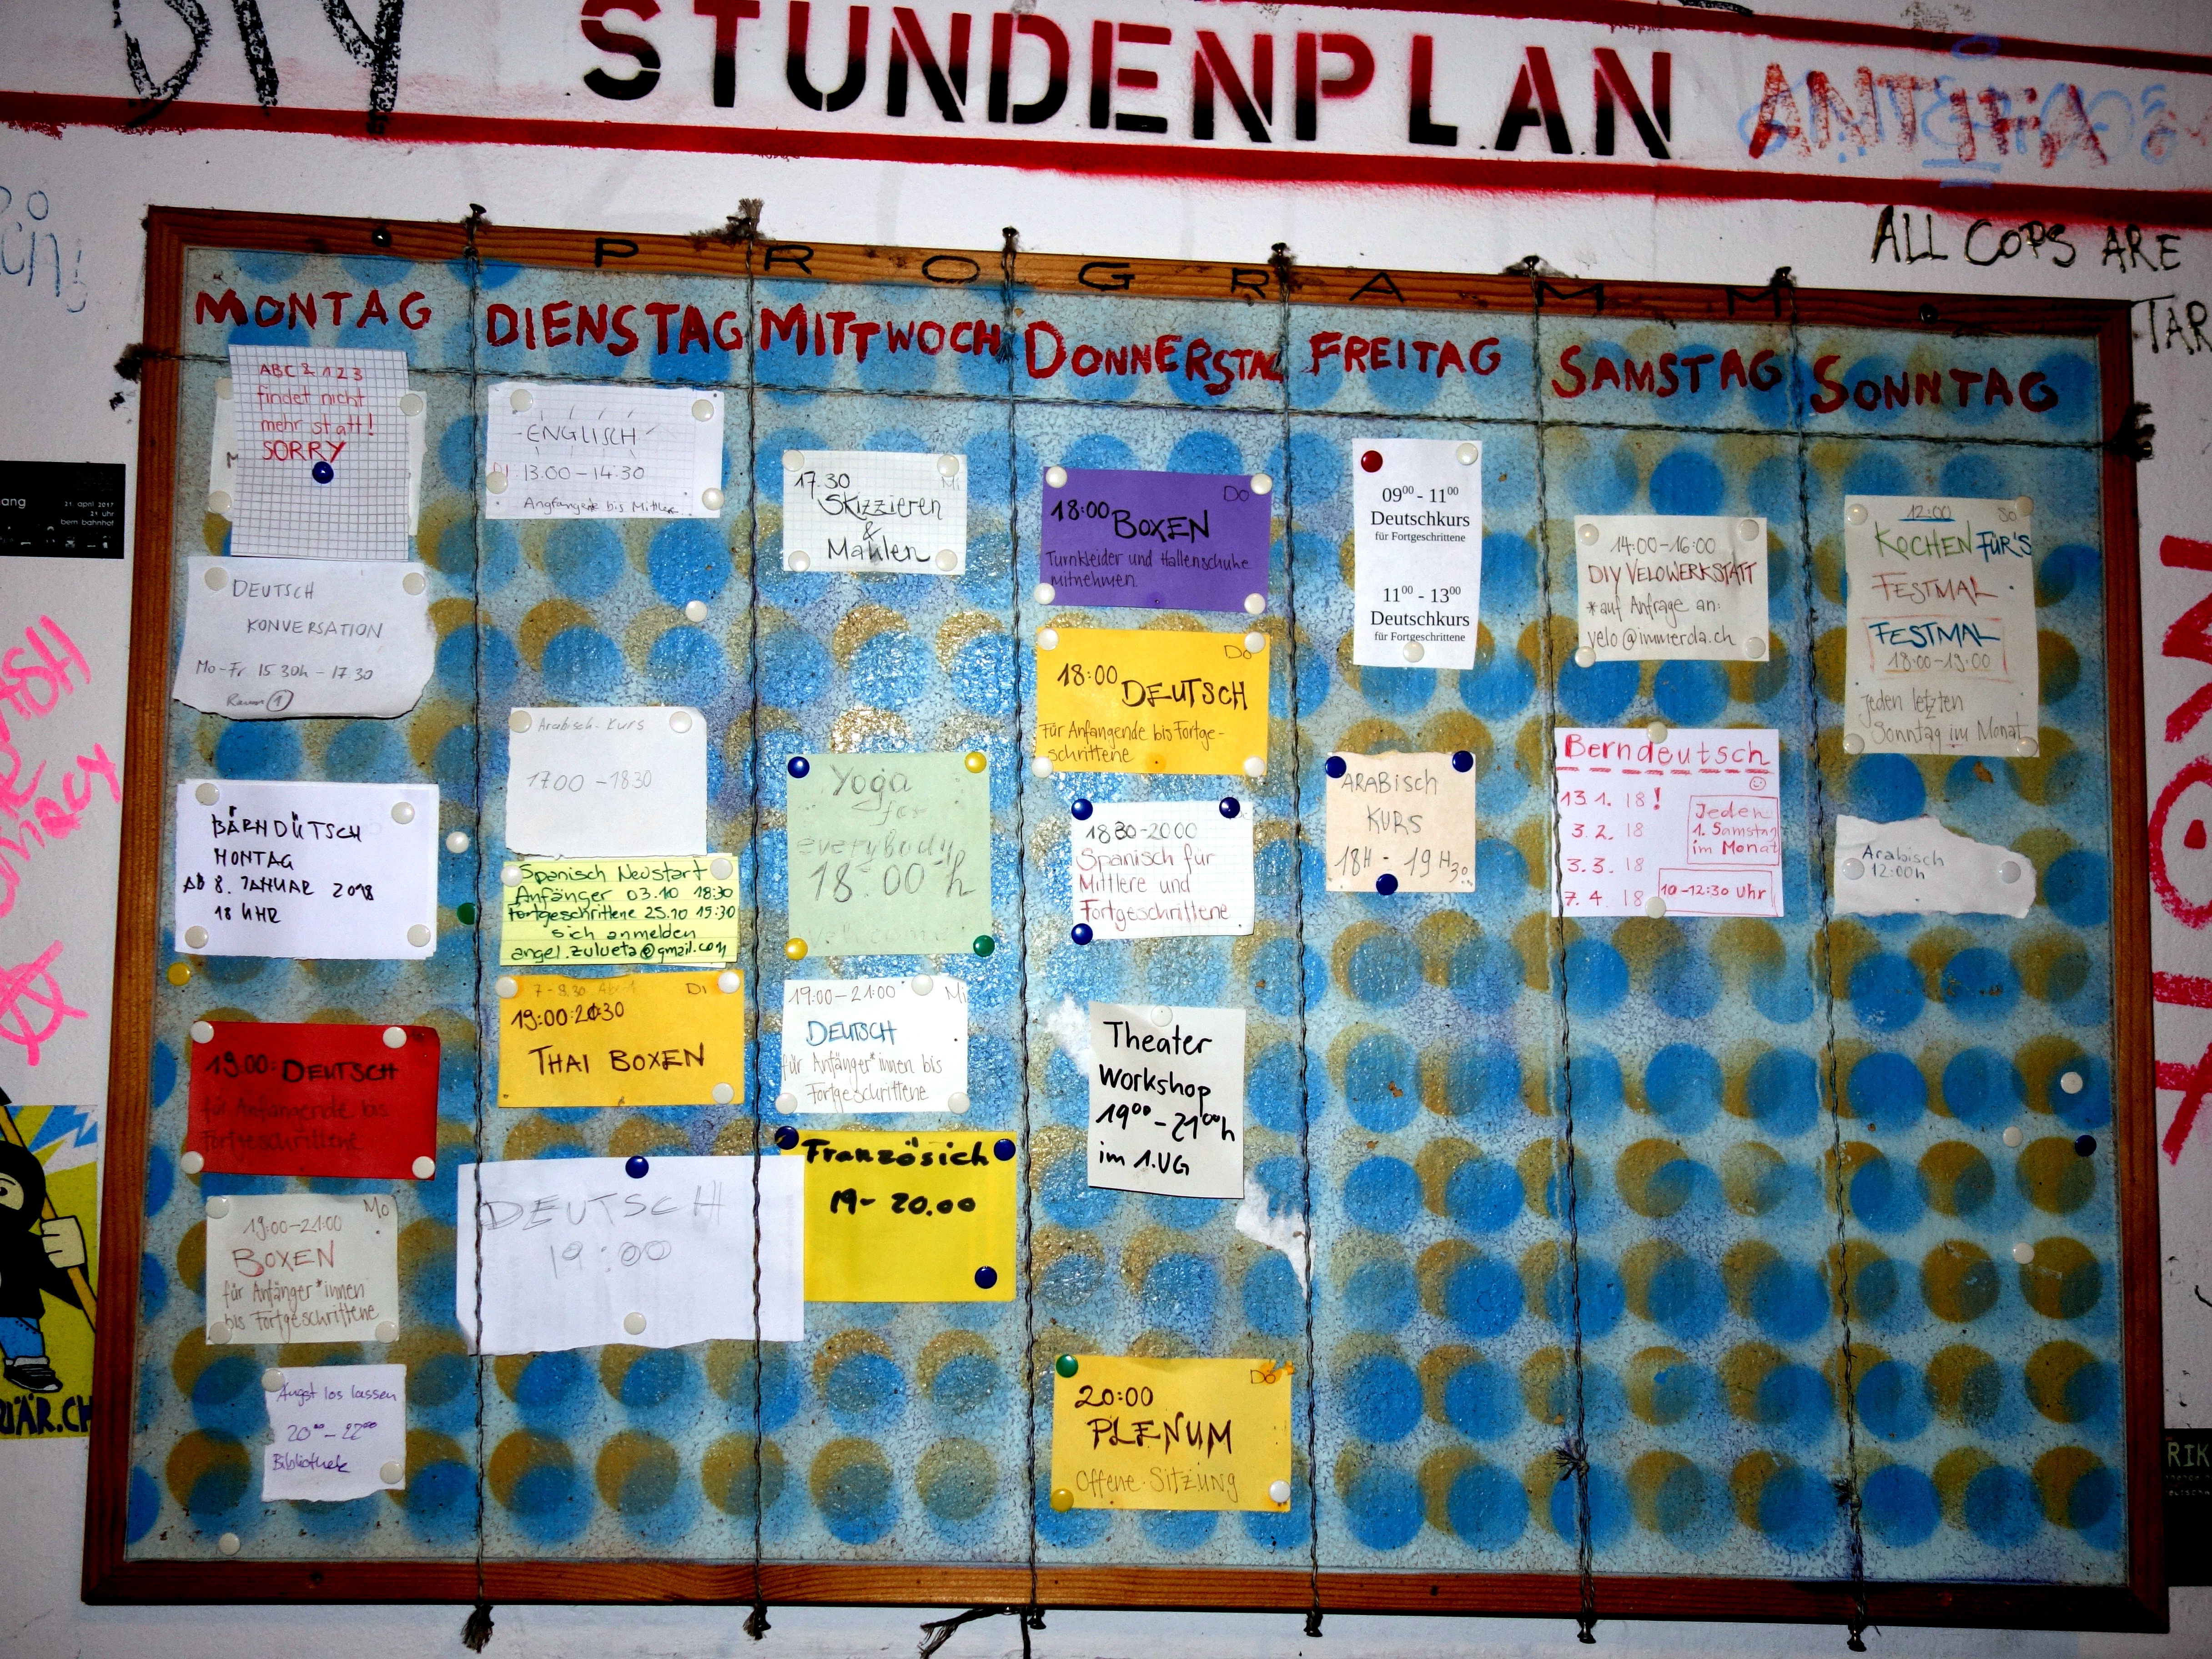 DIY
STUNDENPLAN
ANTIFA
ALL COPS ARE
TAR
PROGRAMM
MONTAG
ABC & 123
findet nicht
mehr statt!
SORRY
DEUTSCH
KONVERSATION
Mo-Fr 15 30h - 17 30
Raum 1
BÄRNDÜTSCH
MONTAG
AB 8. JANUAR 2018
18 UHR
19:00: DEUTSCH
für Anfangende bis
Fortgeschrittene
Mo
19:00-21:00
BOXEN
für Anfänger*innen
bis Fortgeschrittene
Angst los lassen
20⁰⁰-22⁰⁰
Bibliothek
DIENSTAG
ENGLISCH
DI 13.00-14:30
Angfangende bis Mittlere
Arabisch-Kurs
17.00 - 18 30
Spanisch Neustart
Anfänger 03.10 18:30
Fortgeschrittene 25.10 15:30
sich anmelden
angel.zulueta@gmail.com
DI
19:00-20:30
THAI BOXEN
DEUTSCH
19:00
MITTWOCH
17.30 Mi
Skizzieren
&
Mahlen
Yoga
for
everybody
18:00 h
welcome
19:00-21:00 Mi
DEUTSCH
für Anfänger*innen bis
Fortgeschrittene
Französich
19- 20.00
DONNERSTAG
Do
18:00 BOXEN
Turnkleider und Hallenschuhe
mitnehmen.
Do
18:00 DEUTSCH
für Anfangende bis Fortge-
schrittene
18 30-20 00
Spanisch für
Mittlere und
Fortgeschrittene
Theater
Workshop
19⁰⁰-21⁰⁰h
im 1.UG
Do
20:00
PLENUM
Offene Sitzung
FREITAG
09⁰⁰ - 11⁰⁰
Deutschkurs
für Fortgeschrittene
11⁰⁰ - 13⁰⁰
Deutschkurs
für Fortgeschrittene
ARABisch
KURS
18H - 19H30
SAMSTAG
14:00-16:00
DIY VELOWERKSTATT
*auf Anfrage an:
velo@immerda.ch
Berndeutsch
13.1. 18!
3.2. 18
3.3. 18
7.4. 18
Jeden
1. Samstag
im Monat
10-12:30 Uhr
SONNTAG
12:00 So
KOCHEN FÜR'S
FESTMAL
FESTMAL
18:00-19:00
jeden letzten
Sonntag im Monat
Arabisch
12:00h
ang
21. april 2017
21 uhr
beim bahnhof
ÄR.CH
RIK